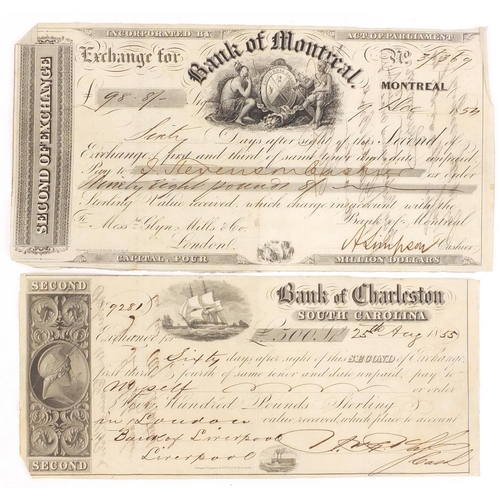 INCORPORATED BY ACT OF PARLIAMENT
SECOND OF EXCHANGE
Exchange for Bank of Montreal. No.
£ 98.8/- Stg MONTREAL
9 Dec 1854
Sixty Days after sight of this Second of
Exchange first and third of same tenor and date unpaid
Pay to J Stevenson Cashier or order
Ninety eight pounds 8/-
Sterling Value received, which charge in account with the
To Bank of Montreal
Messrs. Glyn Mills & Co.
London A Simpson Cashier
CAPITAL, FOUR MILLION DOLLARS
SECOND
Bank of Charleston
SOUTH CAROLINA
No 9281
Exchange for £300 25th Aug 1855
Sixty days after sight of this SECOND of Exchange
first third & fourth of same tenor and date unpaid, pay to
Myself or order
Hundred Pounds Sterling
in London value received, which place to account
To Bank of Liverpool
Liverpool
Cash
SECOND